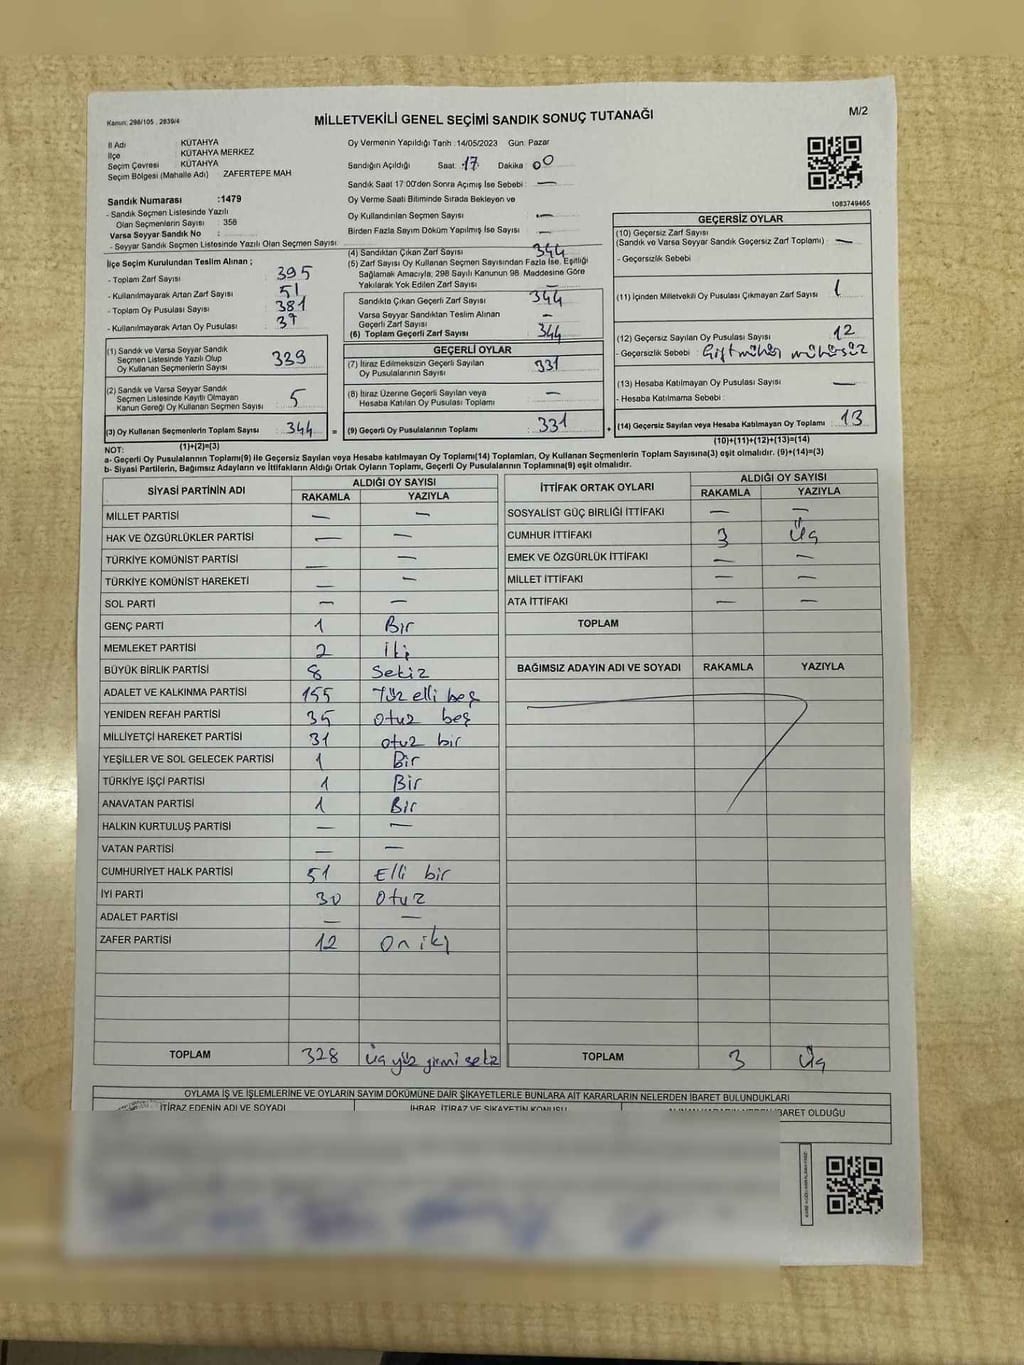 Kanun: 298/105 , 2839/4
MİLLETVEKİLİ GENEL SEÇİMİ SANDIK SONUÇ TUTANAĞI
M/2
İl Adı KÜTAHYA
İlçe KÜTAHYA MERKEZ
Seçim Çevresi KÜTAHYA
Seçim Bölgesi (Mahalle Adı) ZAFERTEPE MAH
Sandık Numarası :1479
- Sandık Seçmen Listesinde Yazılı
Olan Seçmenlerin Sayısı : 358
Varsa Seyyar Sandık No :
- Seyyar Sandık Seçmen Listesinde Yazılı Olan Seçmen Sayısı :
Oy Vermenin Yapıldığı Tarih :14/05/2023 Gün: Pazar
Sandığın Açıldığı Saat: 17 Dakika: 00
Sandık Saat 17:00'den Sonra Açımış İse Sebebi : —
Oy Verme Saati Bitiminde Sırada Bekleyen ve
Oy Kullandırılan Seçmen Sayısı : —
Birden Fazla Sayım Döküm Yapılmış İse Sayısı : —
1083749465
İlçe Seçim Kurulundan Teslim Alınan ;
- Toplam Zarf Sayısı : 395
- Kullanılmayarak Artan Zarf Sayısı : 51
- Toplam Oy Pusulası Sayısı : 381
- Kullanılmayarak Artan Oy Pusulası : 37
(1) Sandık ve Varsa Seyyar Sandık
Seçmen Listesinde Yazılı Olup
Oy Kullanan Seçmenlerin Sayısı 339
(2) Sandık ve Varsa Seyyar Sandık
Seçmen Listesinde Kayıtlı Olmayan
Kanun Gereği Oy Kullanan Seçmen Sayısı 5
(3) Oy Kullanan Seçmenlerin Toplam Sayısı 344
(1)+(2)=(3)
(4) Sandıktan Çıkan Zarf Sayısı 344
(5) Zarf Sayısı Oy Kullanan Seçmen Sayısından Fazla İse, Eşitliği
Sağlamak Amacıyla; 298 Sayılı Kanunun 98. Maddesine Göre
Yakılarak Yok Edilen Zarf Sayısı —
Sandıkta Çıkan Geçerli Zarf Sayısı 344
Varsa Seyyar Sandıktan Teslim Alınan
Geçerli Zarf Sayısı —
(6) Toplam Geçerli Zarf Sayısı 344
GEÇERLİ OYLAR
(7) İtiraz Edilmeksizin Geçerli Sayılan
Oy Pusulalarının Sayısı 331
(8) İtiraz Üzerine Geçerli Sayılan veya
Hesaba Katılan Oy Pusulası Toplamı —
= (9) Geçerli Oy Pusulalarının Toplamı 331 +
GEÇERSİZ OYLAR
(10) Geçersiz Zarf Sayısı
(Sandık ve Varsa Seyyar Sandık Geçersiz Zarf Toplamı) : —
- Geçersizlik Sebebi :
(11) İçinden Milletvekili Oy Pusulası Çıkmayan Zarf Sayısı 1
(12) Geçersiz Sayılan Oy Pusulası Sayısı : 12
- Geçersizlik Sebebi : Çift mühür mühürsüz
(13) Hesaba Katılmayan Oy Pusulası Sayısı : —
- Hesaba Katılmama Sebebi :
(14) Geçersiz Sayılan veya Hesaba Katılmayan Oy Toplamı 13
(10)+(11)+(12)+(13)=(14)
NOT:
a- Geçerli Oy Pusulalarının Toplamı(9) ile Geçersiz Sayılan veya Hesaba katılmayan Oy Toplamı(14) Toplamları, Oy Kullanan Seçmenlerin Toplam Sayısına(3) eşit olmalıdır. (9)+(14)=(3)
b- Siyasi Partilerin, Bağımsız Adayların ve İttifakların Aldığı Ortak Oyların Toplamı, Geçerli Oy Pusulalarının Toplamına(9) eşit olmalıdır.
SİYASİ PARTİNİN ADI ALDIĞI OY SAYISI
RAKAMLA YAZIYLA
MİLLET PARTİSİ — —
HAK VE ÖZGÜRLÜKLER PARTİSİ — —
TÜRKİYE KOMÜNİST PARTİSİ — —
TÜRKİYE KOMÜNİST HAREKETİ — —
SOL PARTİ — —
GENÇ PARTİ 1 Bir
MEMLEKET PARTİSİ 2 iki
BÜYÜK BİRLİK PARTİSİ 8 Sekiz
ADALET VE KALKINMA PARTİSİ 155 Yüz elli beş
YENİDEN REFAH PARTİSİ 35 otuz beş
MİLLİYETÇİ HAREKET PARTİSİ 31 otuz bir
YEŞİLLER VE SOL GELECEK PARTİSİ 1 Bir
TÜRKİYE İŞÇİ PARTİSİ 1 Bir
ANAVATAN PARTİSİ 1 Bir
HALKIN KURTULUŞ PARTİSİ — —
VATAN PARTİSİ — —
CUMHURİYET HALK PARTİSİ 51 Elli bir
İYİ PARTİ 30 Otuz
ADALET PARTİSİ — —
ZAFER PARTİSİ 12 On iki
TOPLAM 328 üç yüz yirmi sekiz
İTTİFAK ORTAK OYLARI ALDIĞI OY SAYISI
RAKAMLA YAZIYLA
SOSYALİST GÜÇ BİRLİĞİ İTTİFAKI — —
CUMHUR İTTİFAKI 3 Üç
EMEK VE ÖZGÜRLÜK İTTİFAKI — —
MİLLET İTTİFAKI — —
ATA İTTİFAKI — —
TOPLAM
BAĞIMSIZ ADAYIN ADI VE SOYADI RAKAMLA YAZIYLA
TOPLAM 3 Üç
OYLAMA İŞ VE İŞLEMLERİNE VE OYLARIN SAYIM DÖKÜMÜNE DAİR ŞİKAYETLERLE BUNLARA AİT KARARLARIN NELERDEN İBARET BULUNDUKLARI
İTİRAZ EDENİN ADI VE SOYADI İHBAR, İTİRAZ VE ŞİKAYETİN KONUSU İBARET OLDUĞU